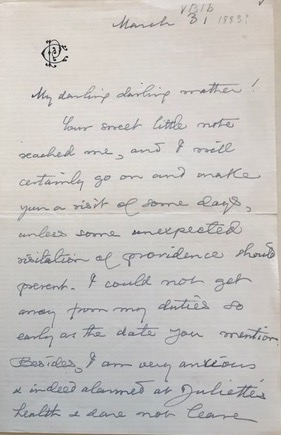 VBIb
March 31 1883?
My darling darling mother!
Your sweet little note
reached me, and I will
certainly go on and make
you a visit of some days,
unless some unexpected
visitation of providence should
prevent. I could not get
away from my duties so
early as the date you mention.
Besides, I am very anxious
& indeed alarmed at Juliette's
health & dare not leave